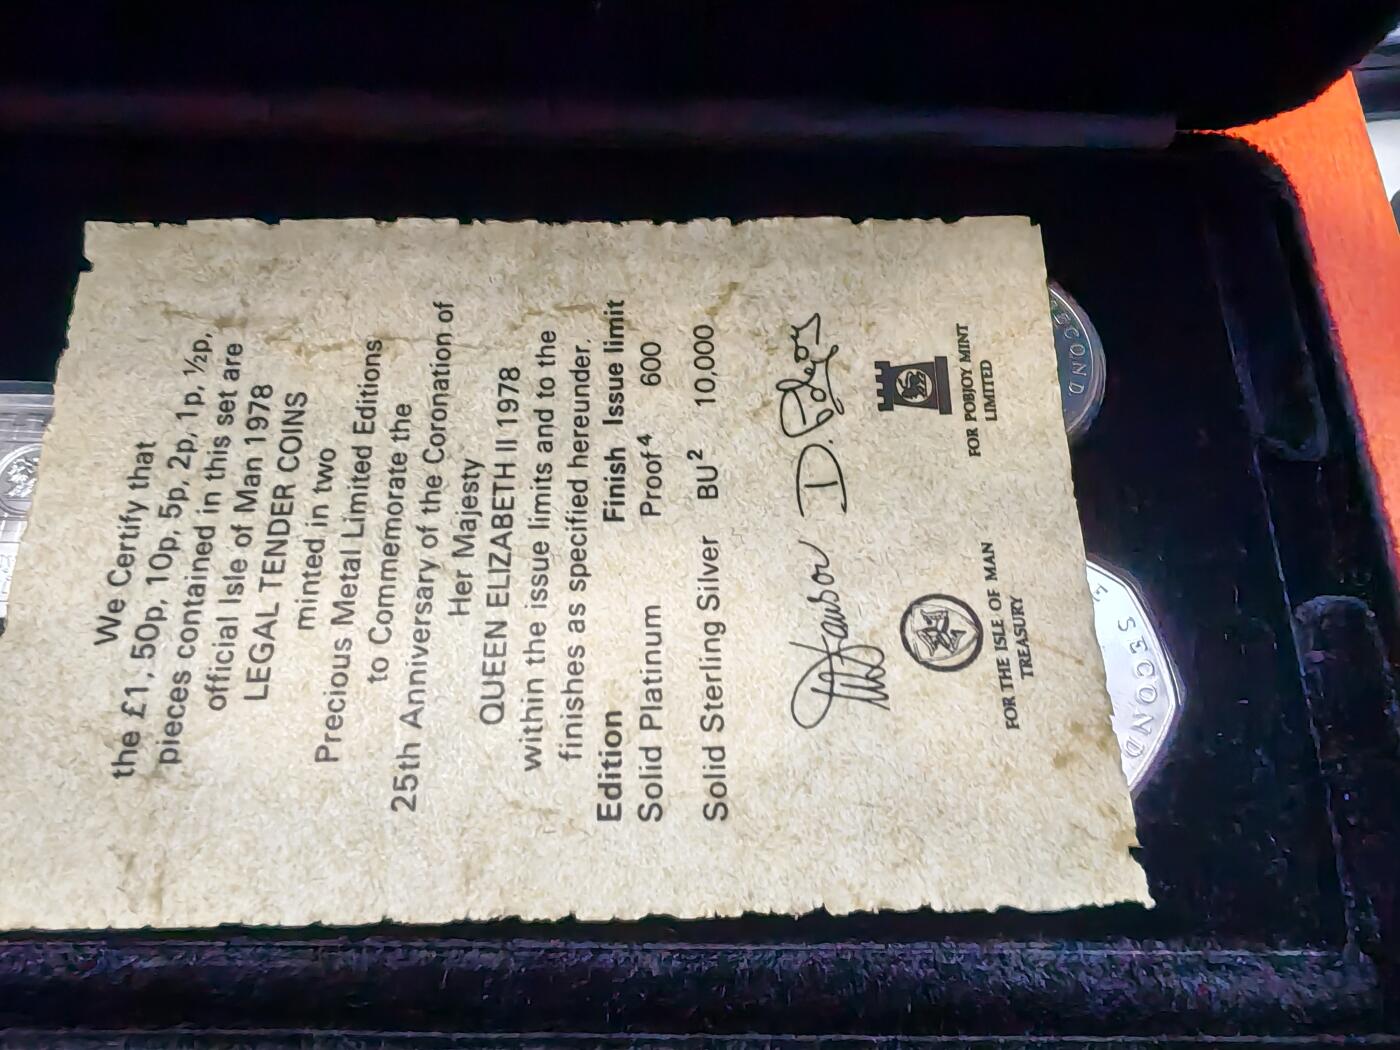 We Certify that
the £1, 50p, 10p, 5p, 2p, 1p, ½p,
pieces contained in this set are
official Isle of Man 1978
LEGAL TENDER COINS
minted in two
Precious Metal Limited Editions
to Commemorate the
25th Anniversary of the Coronation of
Her Majesty
QUEEN ELIZABETH II 1978
within the issue limits and to the
finishes as specified hereunder.
Edition Finish Issue limit
Solid Platinum Proof⁴ 600
Solid Sterling Silver BU² 10,000
FOR THE ISLE OF MAN
TREASURY
FOR POBJOY MINT
LIMITED
SECOND